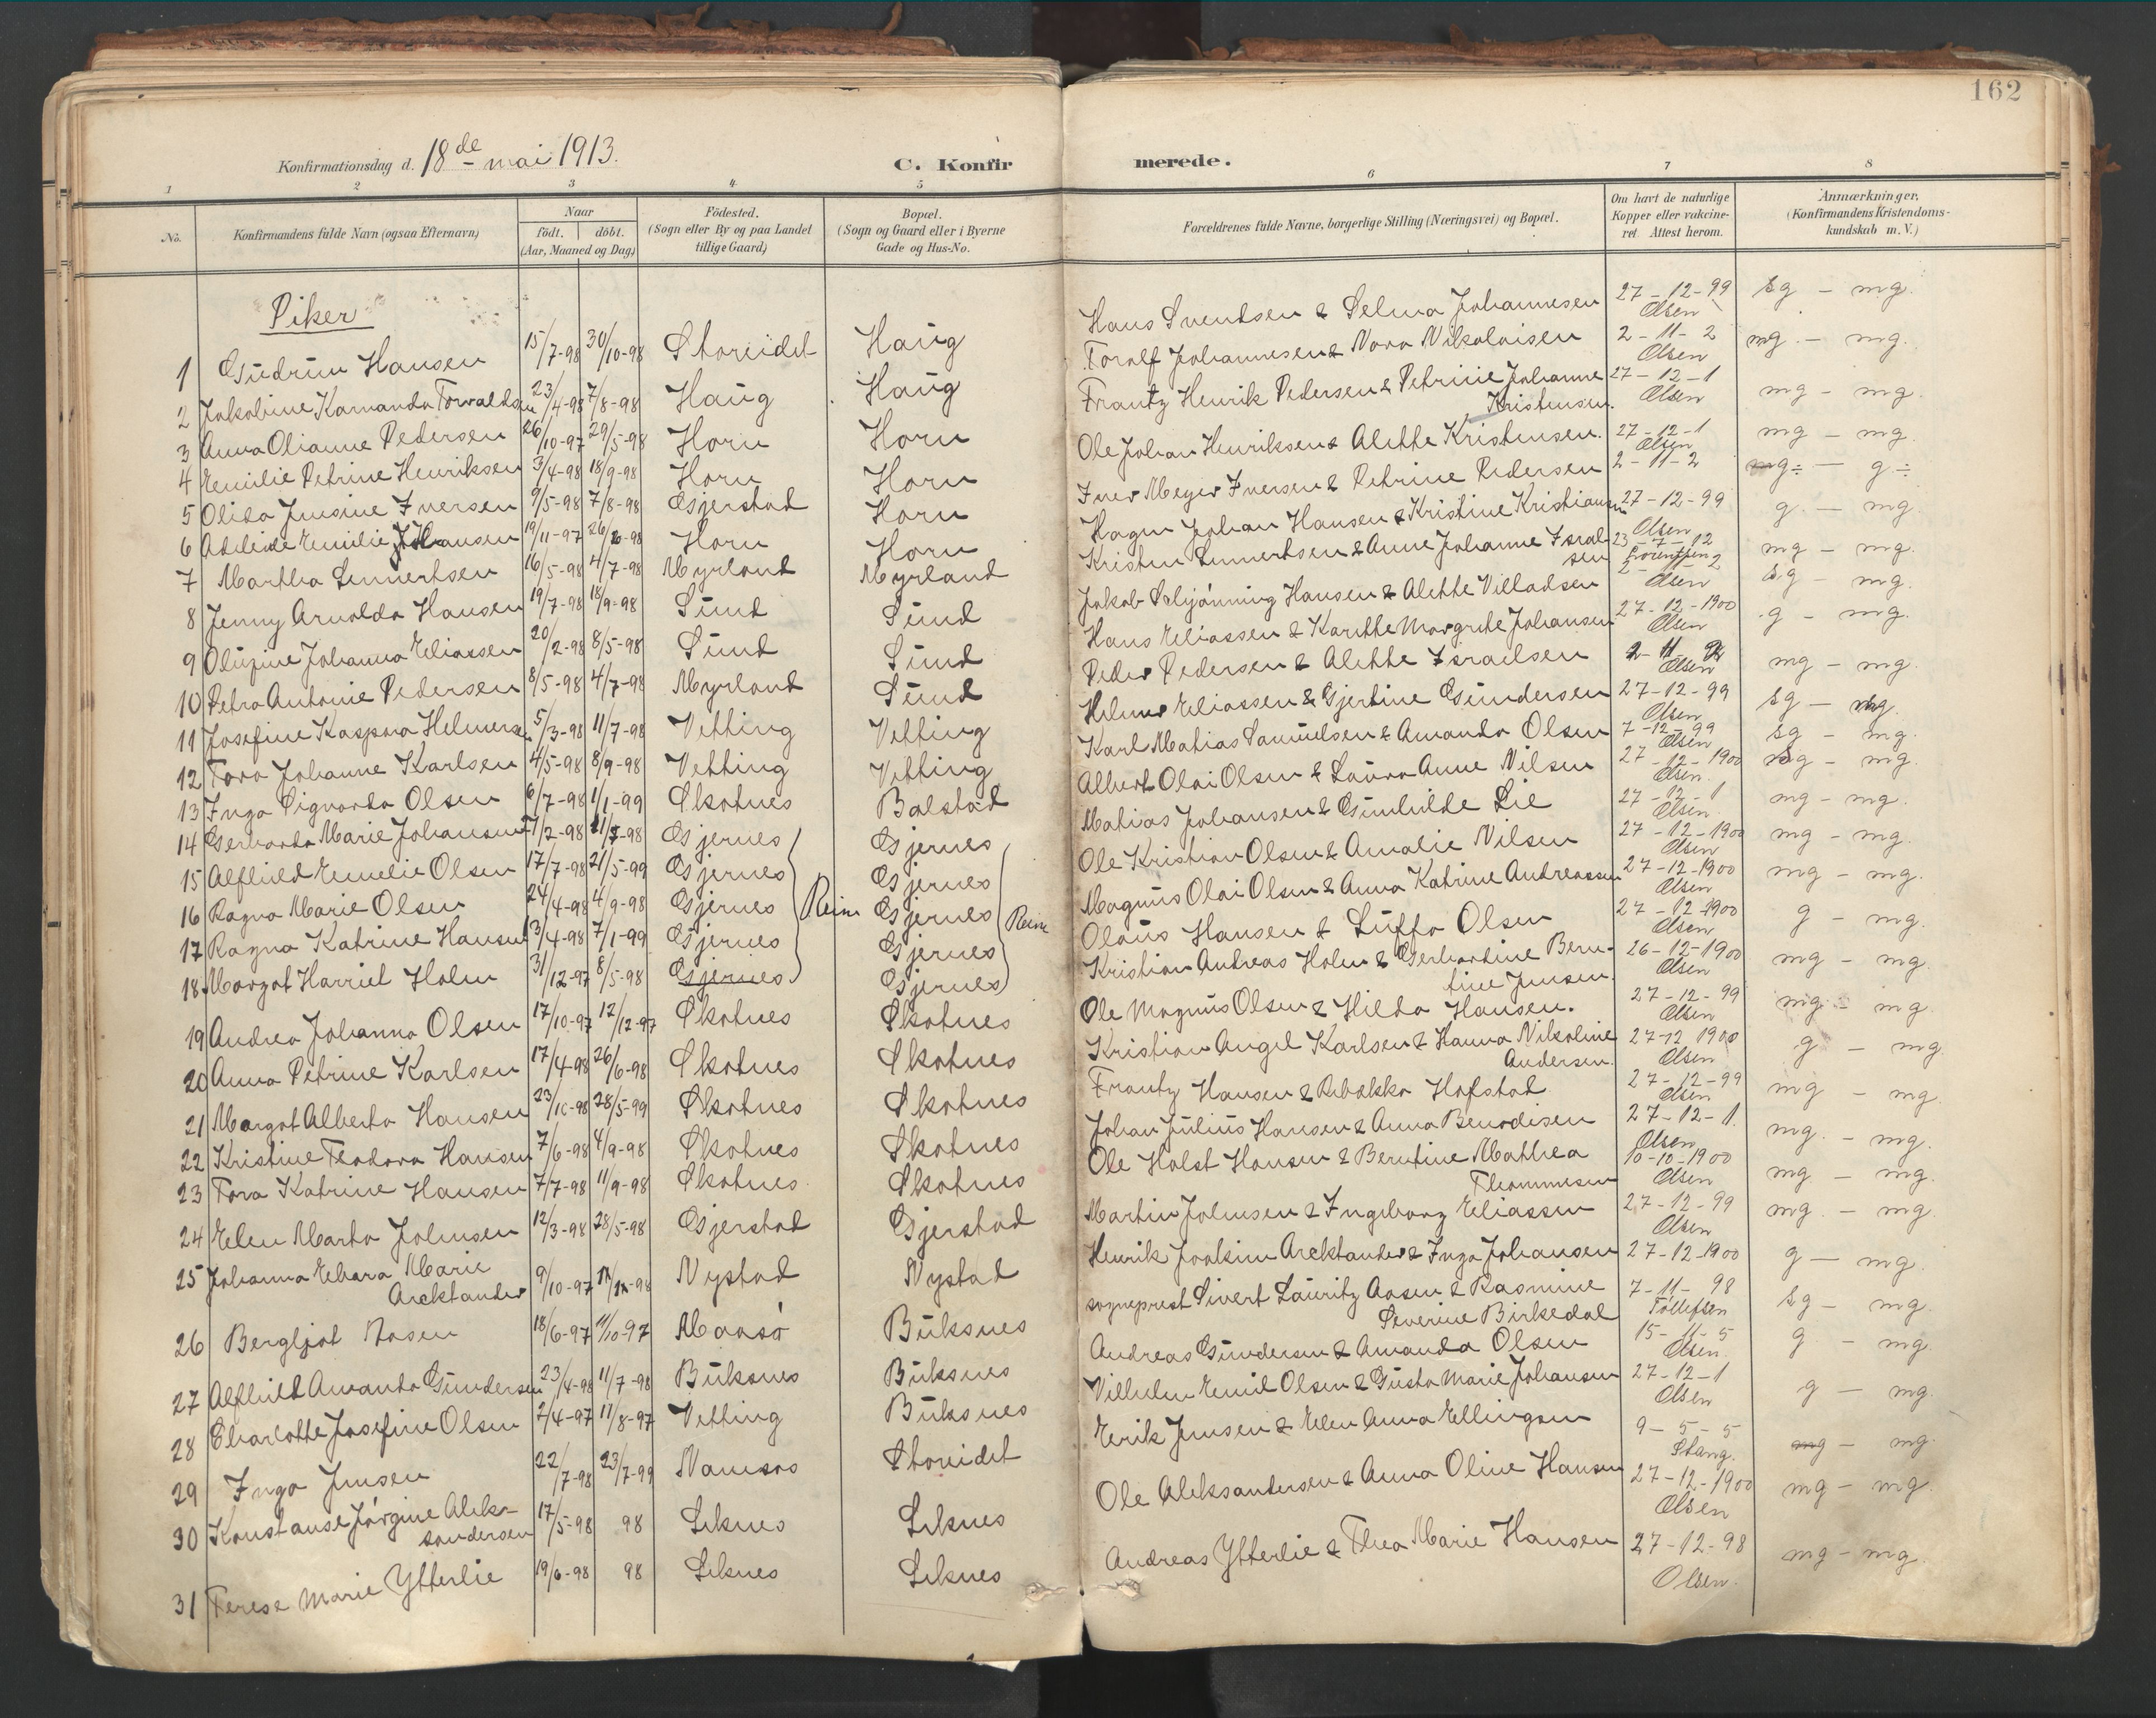 162
Konfirmationsdag d. 18de mai 1913.
C. Konfirmerede.
1 2 3 4 5 6 7 8
No.
Konfirmandens fulde Navn (ogsaa Efternavn)
Naar
født. döbt.
(Aar, Maaned og Dag)
Födested.
(Sogn eller By og paa Landet
tillige Gaard)
Bopæl.
(Sogn og Gaard eller i Byerne
Gade og Hus-No.
Forældrenes fulde Navne, borgerlige Stilling (Næringsvei) og Bopæl.
Om havt de naturlige
Kopper eller vakcine-
ret. Attest herom.
Anmærkninger.
(Konfirmandens Kristendoms-
kundskab m. V.)
Piker
1 Gudrun Hansen 15/7-98 30/10-98 Storeidet Haug Hans Svendsen & Selma Johannesen 27-12-99 Olsen sg - mg.
2 Jakobine Kamanda Torvaldsen 23/4-98 7/8-98 Haug Haug Toralf Johannesen & Nora Nikolaisen 2-11-2 Olsen mg. - mg.
3 Anna Olianne Pedersen 26/10-97 29/5-98 Horn Horn Frantz Henrik Pedersen & Petrine Johanne Kristensen. 27-12-1 Olsen mg - mg.
4 Emilie Petrine Henriksen 3/4-98 18/9-98 Horn Horn Ole Johan Henriksen & Alethe Kristensen. 27-12-1 Olsen mg - mg.
5 Olida Jensine Iversen 9/5-98 7/8-98 Gjerstad Horn Iver Meyer Iversen & Petrine Pedersen 2-11-2 mg÷ - g÷
6 Adleide Emilie Hansen 19/11-97 Horn Horn Hagen Johan Hansen & Kristine Kristiansen 27-12-99 Olsen g. - mg.
7 Martha Lennertsen 16/5-98 4/7-98 Myrland Myrland Kristen Lennertsen & Anne Johanne Israelsen 23-7-12 mg - mg.
8 Jenny Arnolda Hansen 19/7-98 18/9-98 Sund Sund Jakob Hansen & Alethe Villadsen 2-11-2 Olsen sg - mg.
9 Olufine Johanna Eliassen 20/2-98 8/5-98 Sund Sund Hans Eliassen & Karethe Margrete Johansen 27-12-1900 Olsen g - mg.
10 Petra Antonie Pedersen 8/5-98 4/7-98 Myrland Sund Peder Pedersen & Alethe Israelsen 2-11 Olsen mg - mg.
11 Josefine Kaspara Helmersen 5/3-98 11/7-98 Vetting Vetting Helmer Eliassen & Gjertine Gundersen 27-12-99 Olsen sg - mg.
12 Tora Johanne Karlsen 4/5-98 8/9-98 Vetting Vetting Karl Mathias Samuelsen & Amanda Olsen 7-12-99 Olsen sg - mg.
13 Inga Sigvarda Olsen 6/7-98 1/1-99 Skotnes Balstad Albert Olai Olsen & Laura Anne Nilsen 27-12-1900 Olsen. mg - mg.
14 Gerharda Marie Johansen 27/2-98 Gjernes Gjernes Matias Johansen & Gunhilde Lie 27-12-1 Olsen. mg - mg.
15 Alfhild Emelie Olsen 17/7-98 21/5-99 Gjernes Gjernes Ole Kristian Olsen & Amalie Nilsen 27-12-1900 Olsen mg - mg.
16 Ragna Marie Olsen 24/4-98 4/9-98 Gjernes Reine Gjernes Reine Magnus Olai Olsen & Anna Katrine Andreassen 27-12-1900 Olsen mg - mg.
17 Ragna Katrine Hansen 13/4-98 7/1-99 Gjernes Gjernes Olaus Hansen & Luffa Olsen 27-12-1900 Olsen g - mg.
18 Margot Harriet Holm 31/12-97 8/5-98 Gjernes Gjernes Kristian Andreas Holm & Gerhardine Berntine Jensen. 26-12-1900 Olsen mg - mg.
19 Andrea Johanna Olsen 17/10-97 12/12-97 Skotnes Skotnes Ole Magnus Olsen & Hilda Hansen. 27-12-99 Olsen mg - mg
20 Anna Petrine Karlsen 17/4-98 26/6-98 Skotnes Skotnes Kristian Angel Karlsen & Hanna Nikoline Andersen. 27-12 1900 Olsen g - mg
21 Margot Alberta Hansen 23/10-98 28/5-99 Skotnes Skotnes Frantz Hansen & Rebekka Hofstad 27-12-99 Olsen mg - mg.
22 Kristine Teodora Hansen 7/6-98 4/9-98 Skotnes Skotnes Johan Julius Hansen & Anna Benedisen 27-12-1. Olsen mg. - mg.
23 Tora Katrine Hansen 7/7-98 11/9-98 Skotnes Skotnes Ole Holst Hansen & Berntine Mathea Thommesen 10-10-1900 Olsen mg - mg.
24 Elen Marta Johnsen 12/3-98 28/5-98 Gjerstad Gjerstad Martin Johnsen & Ingeborg Eliassen 27-12-99 Olsen mg. - mg.
25 Johanna Ebara Marie Arcktander 9/10-97 Nystad Nystad Henrik Joakim Arcktander & Inga Johansen 27-12-1900 g - mg.
26 Bergljot Aasen 18/6-97 11/10-97 Maasø Buksnes sogneprest Sivert Lauritz Aasen & Rasmine Severine Birkedal 7-11-98 Tollefsen sg - mg.
27 Alfhild Amanda Gundersen 23/4-98 11/7-98 Buksnes Buksnes Andreas Gundersen & Amanda Olsen 15-11-5 Olsen. g. - mg.
28 Charlotte Josefine Olsen 2/4-97 17/8-97 Vetting Buksnes Vilhelm Emil Olsen & Gusta Marie Johansen 27-12-1 Olsen g - mg.
29 Inga Jensen 22/7-98 23/7-99 Namsos Storeidet Erik Jensen & Elen Anna Ellingsen 9-5-5 Stang. mg - mg.
30 Konstanse Jørgine Aleksandersen 17/5-98 98 Leknes Leknes Ole Aleksandersen & Anna Oline Hansen 27-12-1900 Olsen mg - mg.
31 Terese Marie Ytterlie 19/6-98 98 Leknes Leknes Andreas Ytterlie & Thea Marie Hansen 27-12-98 Olsen. mg - mg.